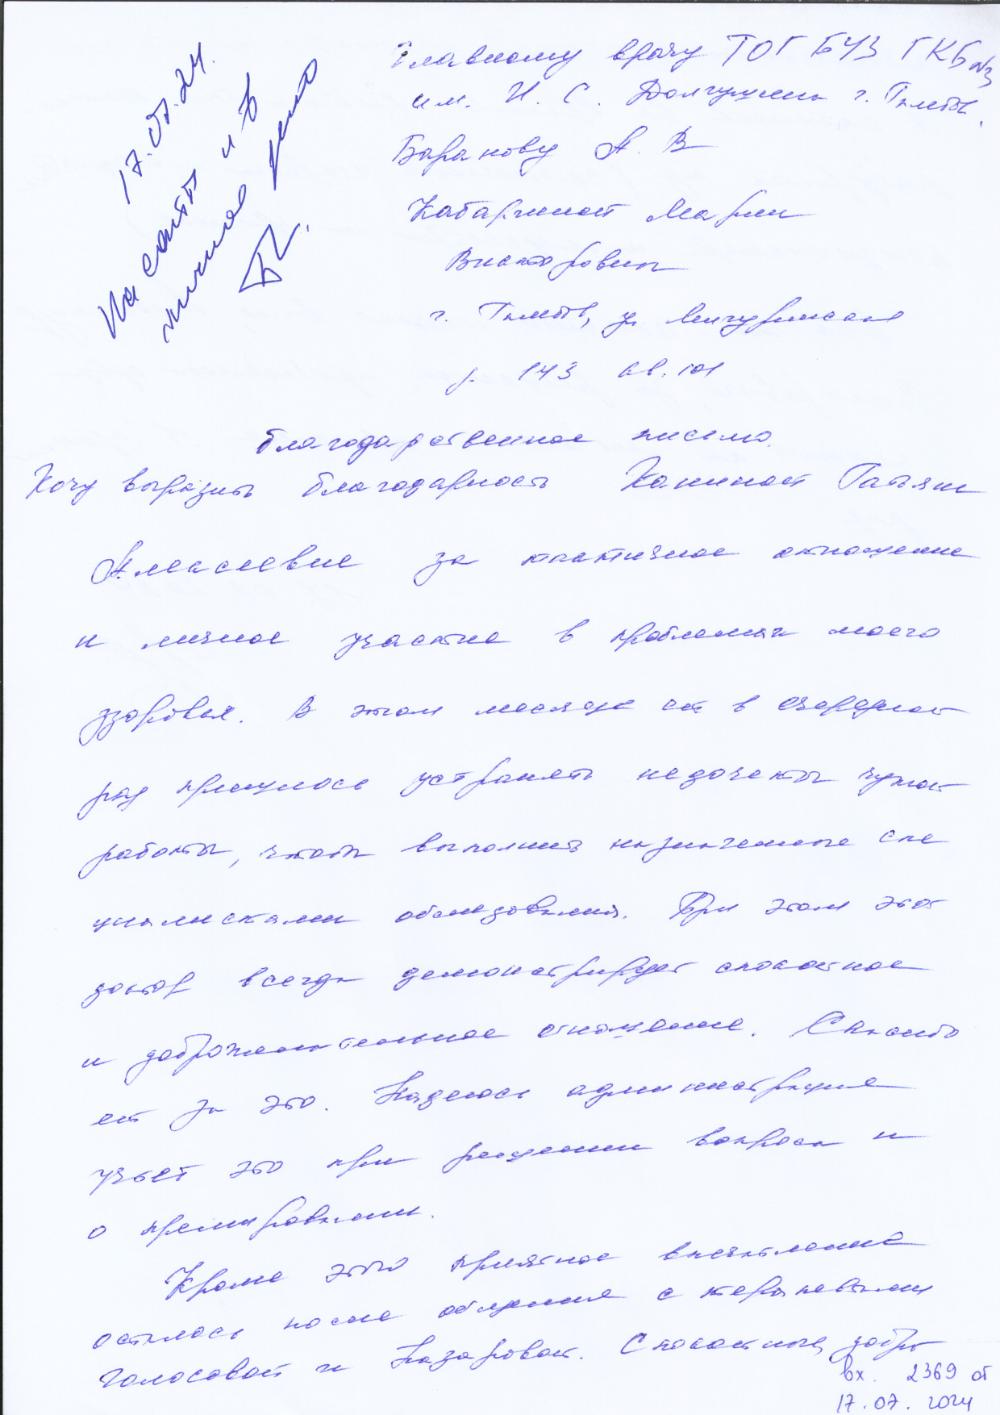 17.07.24.
На сайт и в
личное дело
Главному врачу ТОГБУЗ ГКБ №3
им. И. С. Долгушина г. Тамбов.
Баранову А. В
Марии
Викторовны
г. Тамбов, ул Мичуринская
д. 143 кв. 101
Благодарственное письмо.
Хочу выразить благодарность Каниной Татьяне
Алексеевне за тактичное отношение
и личное участие в проблемах моего
здоровья. В этом месяце ей в очередной
раз пришлось устранять недочеты чужой
работы, чтобы выполнить назначенные спе
циалистами обследования. При этом этот
доктор всегда демонстрирует спокойное
и доброжелательное отношение. Спасибо
ей за это. Надеюсь администрация
учтет это при решении вопроса и
о премировании.
Кроме этого приятное впечатление
осталось после общения с терапевтами
Голосовой и Назаровой. Спокойные, добро
вх. 2369 от
17.07.2024